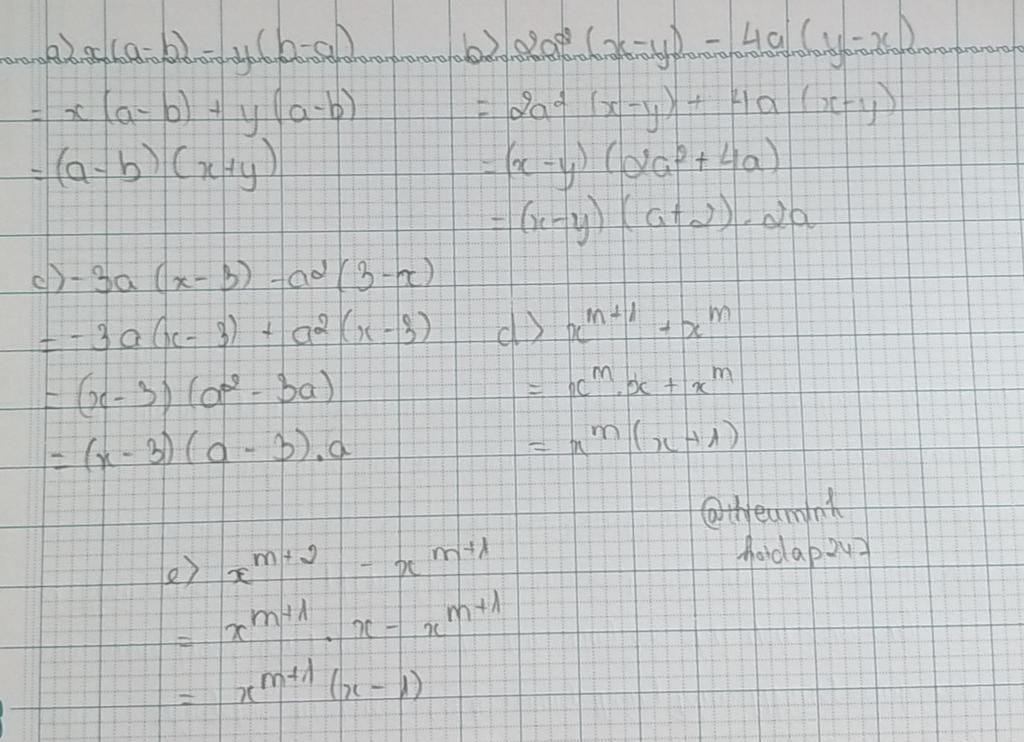 a) x(a-b) - y(b-a)
= x(a-b) + y(a-b)
= (a-b)(x+y)
b) 2a²(x-y) - 4a(y-x)
= 2a²(x-y) + 4a(x-y)
= (x-y)(2a²+4a)
= (x-y)(a+2).2a
c) -3a(x-3) - a²(3-x)
= -3a(x-3) + a²(x-3)
= (x-3)(a²-3a)
= (x-3)(a-3).a
d) x^{m+1} + x^m
= x^m.x + x^m
= x^m(x+1)
@thieuminh
hoidap247
e) x^{m+2} - x^{m+1}
= x^{m+1}.x - x^{m+1}
= x^{m+1}(x-1)